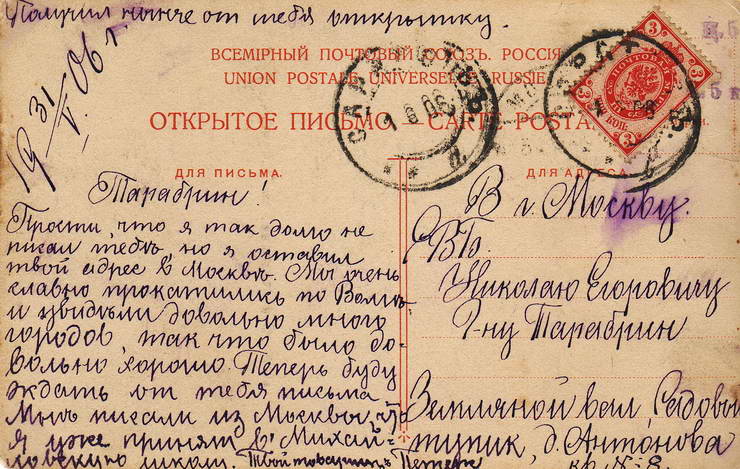 Получил нынче от тебя открытку.
19 31/V 06 г
ВСЕМІРНЫЙ ПОЧТОВЫЙ СОЮЗЪ. РОССІЯ
UNION POSTALE UNIVERSELLE. RUSSIE
ОТКРЫТОЕ ПИСЬМО — CARTE POSTALE
ДЛЯ ПИСЬМА.
ДЛЯ АДРЕСА
САРАТОВЪ
1 6 06
Тарабрин!
Прости, что я так долго не
писал тебѣ, но я оставил
твой адрес в Москвѣ. Мы очень
славно прокатились по Волгѣ
и увидѣли довольно много
городов, так что было до-
вольно хорошо. Теперь буду
ждать от тебя письма.
Мнѣ писали из Москвы, что
я уже принят в Михай-
ловскую школу. Твой товарищъ
В г. Москву.
ЕВБ.
Николаю Егоровичу
Г-ну Тарабрин
Земляной вал, Садовой
тупик, д. Антонова
кв. № 8